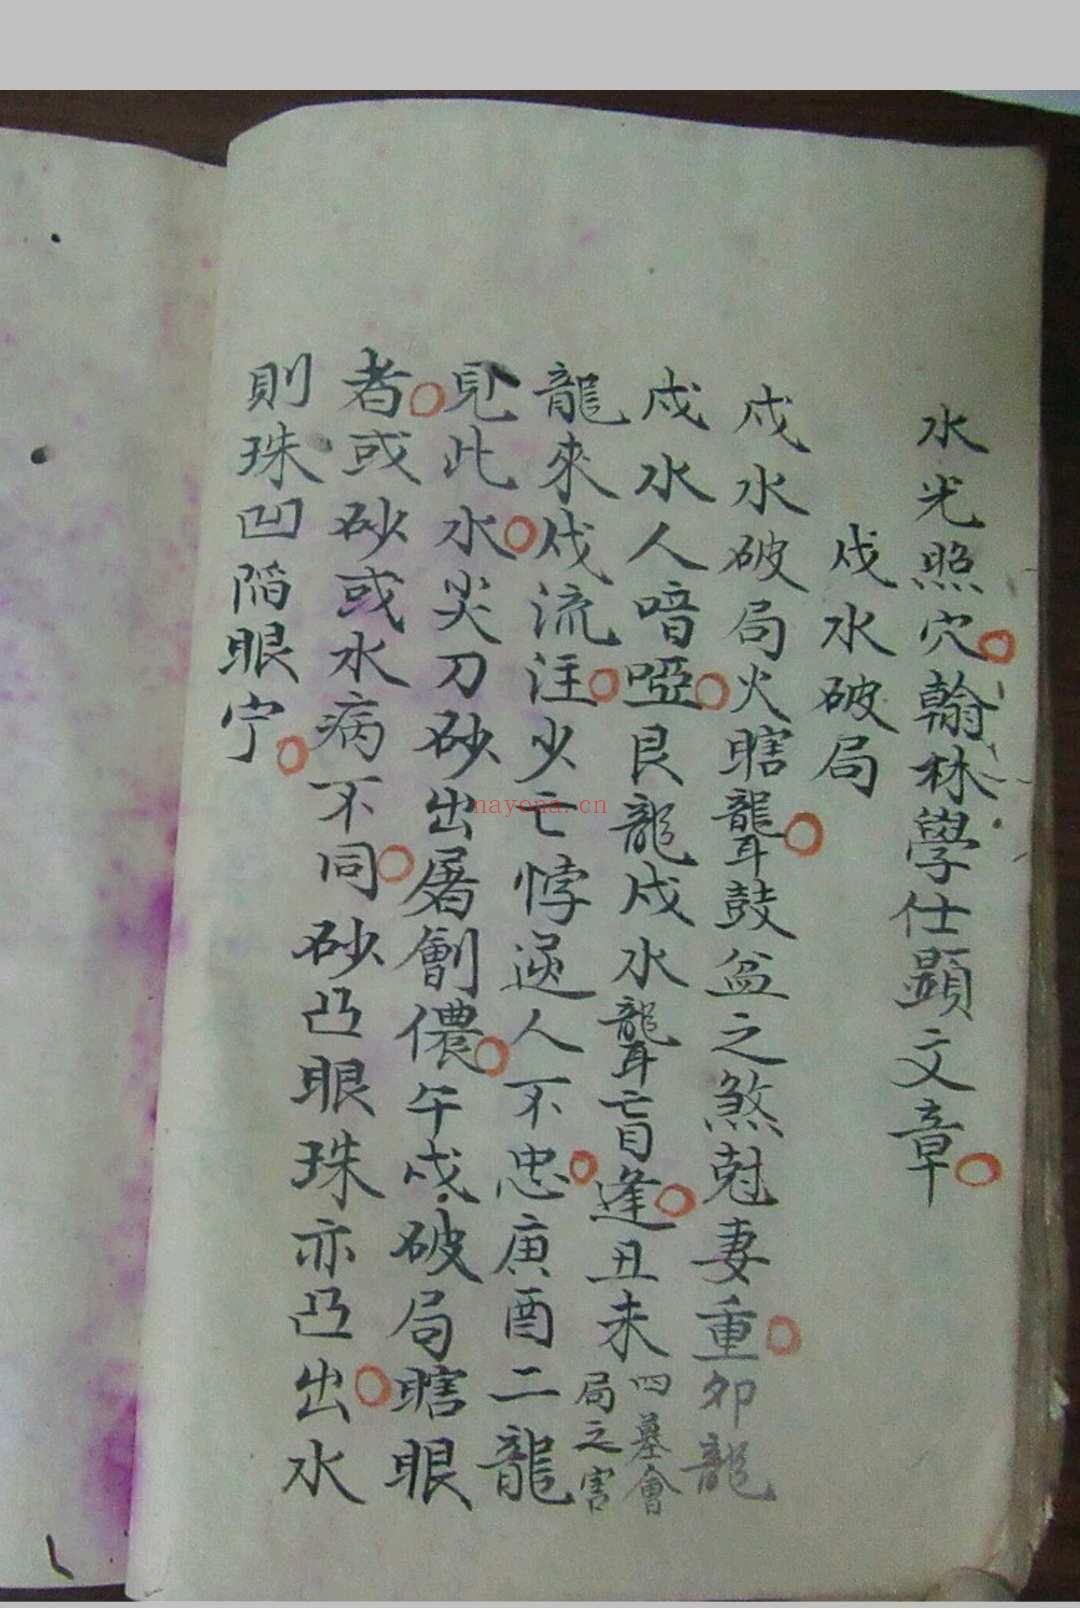 水光照穴翰林學仕顯文章
戍水破局
戍水破局火瞎聾鼓盆之煞尅妻重卯龍
戍水人喑啞艮龍戍水聾盲逢丑未四墓會局之害
龍來戍流注少亡悖逆人不忠庚酉二龍
見此水尖刀砂出屠劊儂午戍破局瞎眼
者或砂或水病不同砂凸眼珠亦凸出水
則珠凹陷眼宁
nayona.cn